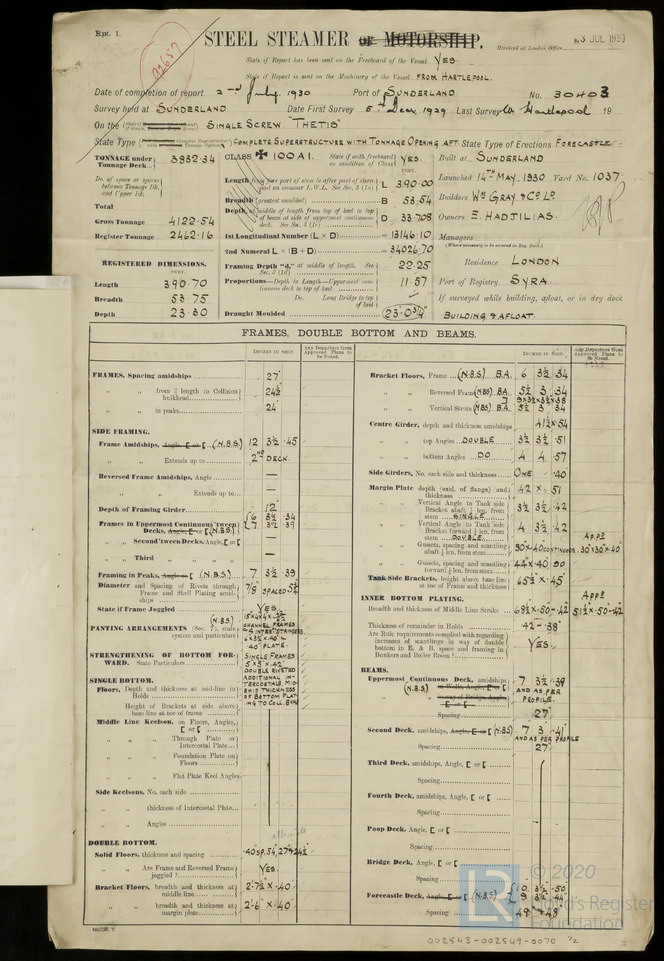 Rpt. 1.
STEEL STEAMER or MOTORSHIP.
JUL 1930
Received at London Office
State if Report has been sent on the Freeboard of the Vessel YES.
State if Report is sent on the Machinery of the Vessel FROM HARTLEPOOL.
Date of completion of report 2nd July 1930 Port of SUNDERLAND No. 30403
Survey held at SUNDERLAND Date First Survey 5th Dec, 1929 Last Survey Hartlepool 19
On the SINGLE SCREW "THETIS"
State Type COMPLETE SUPERSTRUCTURE WITH TONNAGE OPENING AFT State Type of Erections FORECASTLE
TONNAGE under Tonnage Deck 3982.34 CLASS ✠ 100A1. State if with freeboard as condition of Class YES.
Built at SUNDERLAND
Launched 14TH MAY. 1930 Yard No. 1037
Builders WM GRAY & CO LD.
Owners E. HADJILIAS.
Managers
(Where necessary to be entered in Reg. Book.)
Residence LONDON
Port of Registry SYRA.
If surveyed while building, afloat, or in dry dock
BUILDING & AFLOAT.
Do. of space or spaces between Tonnage Dk. and Upper Dk.
Total
Gross Tonnage 4122.54
Register Tonnage 2462.16
REGISTERED DIMENSIONS.
FEET.
Length 390.70
Breadth 53.75
Depth 23.30
L 390.00
Breadth (greatest moulded) B 53.54
D 33.708
1st Longitudinal Number (L × D) = 13146.10
2nd Numeral L × (B + D) = 34026.70
Framing Depth "d," at middle of length. See Sec. 3 (1d) 22.25
Proportions—Depth to Length—Uppermost continuous deck to top of keel 11.57
Do. Long Bridge to top of keel
Draught Moulded 23.0¾
FRAMES, DOUBLE BOTTOM AND BEAMS.
INCHES IN SHIP.
Any Departure from Approved Plans to be Noted.
FRAMES, Spacing amidships 27
from ⅕ length to Collision bulkhead 24½
in peaks 24
SIDE FRAMING.
Frame Amidships, Angle, [ or [ (N.B.S) 12 3½ .45
Extends up to 2ND DECK.
Reversed Frame Amidships, Angle —
Extends up to —
Depth of Framing Girder 12
Frames in Uppermost Continuous 'tween Decks, Angle, [ or [ (N.B.S) 6 3½ .34
7 3½ .39
Second 'tween Decks, Angle, [ or [ —
Third —
Framing in Peaks, Angle or [ (N.B.S.) 7 3½ .39
Diameter and Spacing of Rivets through Frame and Shell Plating amidships 7/8 SPACED
State if Frame Joggled YES.
PANTING ARRANGEMENTS (Sec. 7), state system and particulars (N.B.S)
CHANNEL FRAMES
.40 PLATE.
STRENGTHENING OF BOTTOM FORWARD. State Particulars
SINGLE FRAMES
5"x5"x.42"
DOUBLE RIVETED
ADDITIONAL INTERCOSTALS, MIDSHIP THICKNESS OF BOTTOM PLATING TO COLL. BHD
SINGLE BOTTOM.
Floors, Depth and thickness at mid-line in Holds
Height of Brackets at side above base line at toe of frame
Middle Line Keelson, on Floors, Angles, [ or [
Through Plate or Intercostal Plate
Foundation Plate on Floors
Flat Plate Keel Angles
Side Keelsons, No. each side
thickness of Intercostal Plate
Angles
DOUBLE BOTTOM.
Solid Floors, thickness and spacing .40 SP. 54, 27 & 24½
Are Frame and Reversed Frame joggled? YES.
Bracket Floors, breadth and thickness at middle line 2'-7½ × .40
breadth and thickness at margin plate 2'-6" × .40
Bracket Floors, Frame (N.B.S) B.A. 6 3½ .34
Reversed Frame (NBS) B.A. 5½ 3 .34
Vertical Struts (NBS). B.A. 5½ 3 .34
Centre Girder, depth and thickness amidships 41½ × .54
top Angles DOUBLE 3½ 3½ .51
bottom Angles DO 4 4 .57
Side Girders, No. each side and thickness ONE .40
Margin Plate depth (excl. of flange) and thickness 42 × .51
Vertical Angle to Tank side Bracket abaft ¼ len. from stem SINGLE 3½ 3½ .42
Vertical Angle to Tank side Bracket forward ¼ len. from stem DOUBLE 4 3½ .42
Gussets, spacing and scantling abaft ¼ len. from stem 30 × .40 CONTINUOUS
APPD 30 × 30 × .40
Gussets, spacing and scantling forward ¼ len. from stem
Tank Side Brackets, height above base line at toe of frame and thickness 65½ × .45
INNER BOTTOM PLATING.
APPD
Breadth and thickness of Middle Line Strake 68½ × .50-.42 51½ × .50-.42
Thickness of remainder in Holds .42 - .38
Are Rule requirements complied with regarding increases of scantlings in way of double bottom in E. & B. space and framing in Bunkers and Boiler Room? YES.
BEAMS.
Uppermost Continuous Deck, amidships (N.B.S) 7 3½ .39
AND AS PER PROFILE.
Spacing 27
Second Deck, amidships, Angle, [ or [ (N.B.S) 7 3 .41
AND AS PER PROFILE
Spacing 27"
Third Deck, amidships, Angle, [ or [
Spacing
Fourth Deck, amidships, Angle, [ or [
Spacing
Poop Deck, Angle, [ or [
Spacing
Bridge Deck, Angle, [ or [
Spacing
Forecastle Deck, Angle, [ or [ (N.B.S) 10 3½ .50
9 3½ .44
Spacing 48 & 48
© 2020
Lloyd's Register
Foundation
002543-002549-0070 ½